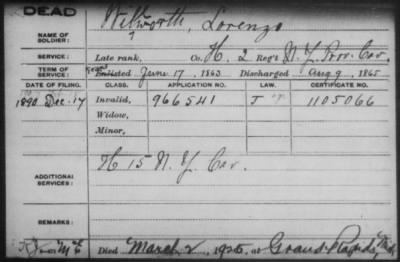 DEAD
NAME OF SOLDIER: Wilworth, Lorenzo
SERVICE: Late rank, Co. H. 2 Reg't N. Y. Prov. Cav.
TERM OF SERVICE: Enlisted June 17, 1863 Discharged Aug 9, 1865
DATE OF FILING. CLASS. APPLICATION NO. LAW. CERTIFICATE NO.
1890 Dec. 17 Invalid, 966541 J 1105066
Widow,
Minor,
ADDITIONAL SERVICES: H 15 N. Y. Cav.
REMARKS:
Died March 2, 1925, at Grand Rapids, Mich.